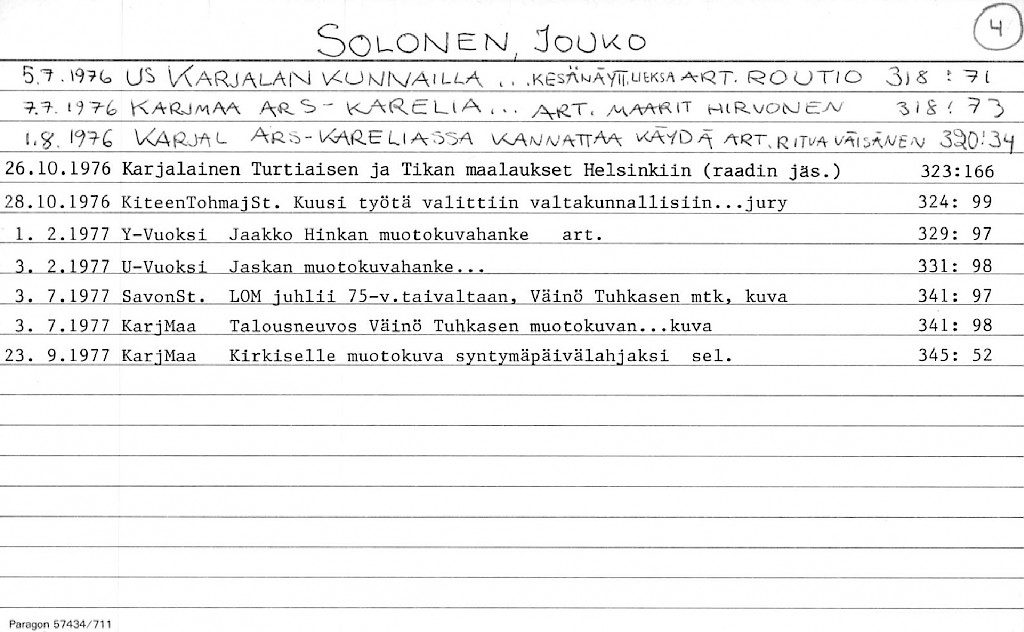 4
SOLONEN, JOUKO
5.7.1976 US KARJALAN KUNNAILLA ... KESÄNÄYTT. LIEKSA ART. ROUTIO 318:71
7.7.1976 KARJMAA ARS-KARELIA... ART. MAARIT HIRVONEN 318:73
1.8.1976 KARJAL ARS-KARELIASSA KANNATTAA KÄYDÄ ART. RITVA VÄISÄNEN 320:34
26.10.1976 Karjalainen Turtiaisen ja Tikan maalaukset Helsinkiin (raadin jäs.) 323:166
28.10.1976 KiteenTohmajSt. Kuusi työtä valittiin valtakunnallisiin...jury 324: 99
1. 2.1977 Y-Vuoksi Jaakko Hinkan muotokuvahanke art. 329: 97
3. 2.1977 U-Vuoksi Jaskan muotokuvahanke... 331: 98
3. 7.1977 SavonSt. LOM juhlii 75-v.taivaltaan, Väinö Tuhkasen mtk, kuva 341: 97
3. 7.1977 KarjMaa Talousneuvos Väinö Tuhkasen muotokuvan...kuva 341: 98
23. 9.1977 KarjMaa Kirkiselle muotokuva syntymäpäivälahjaksi sel. 345: 52
Paragon 57434/711